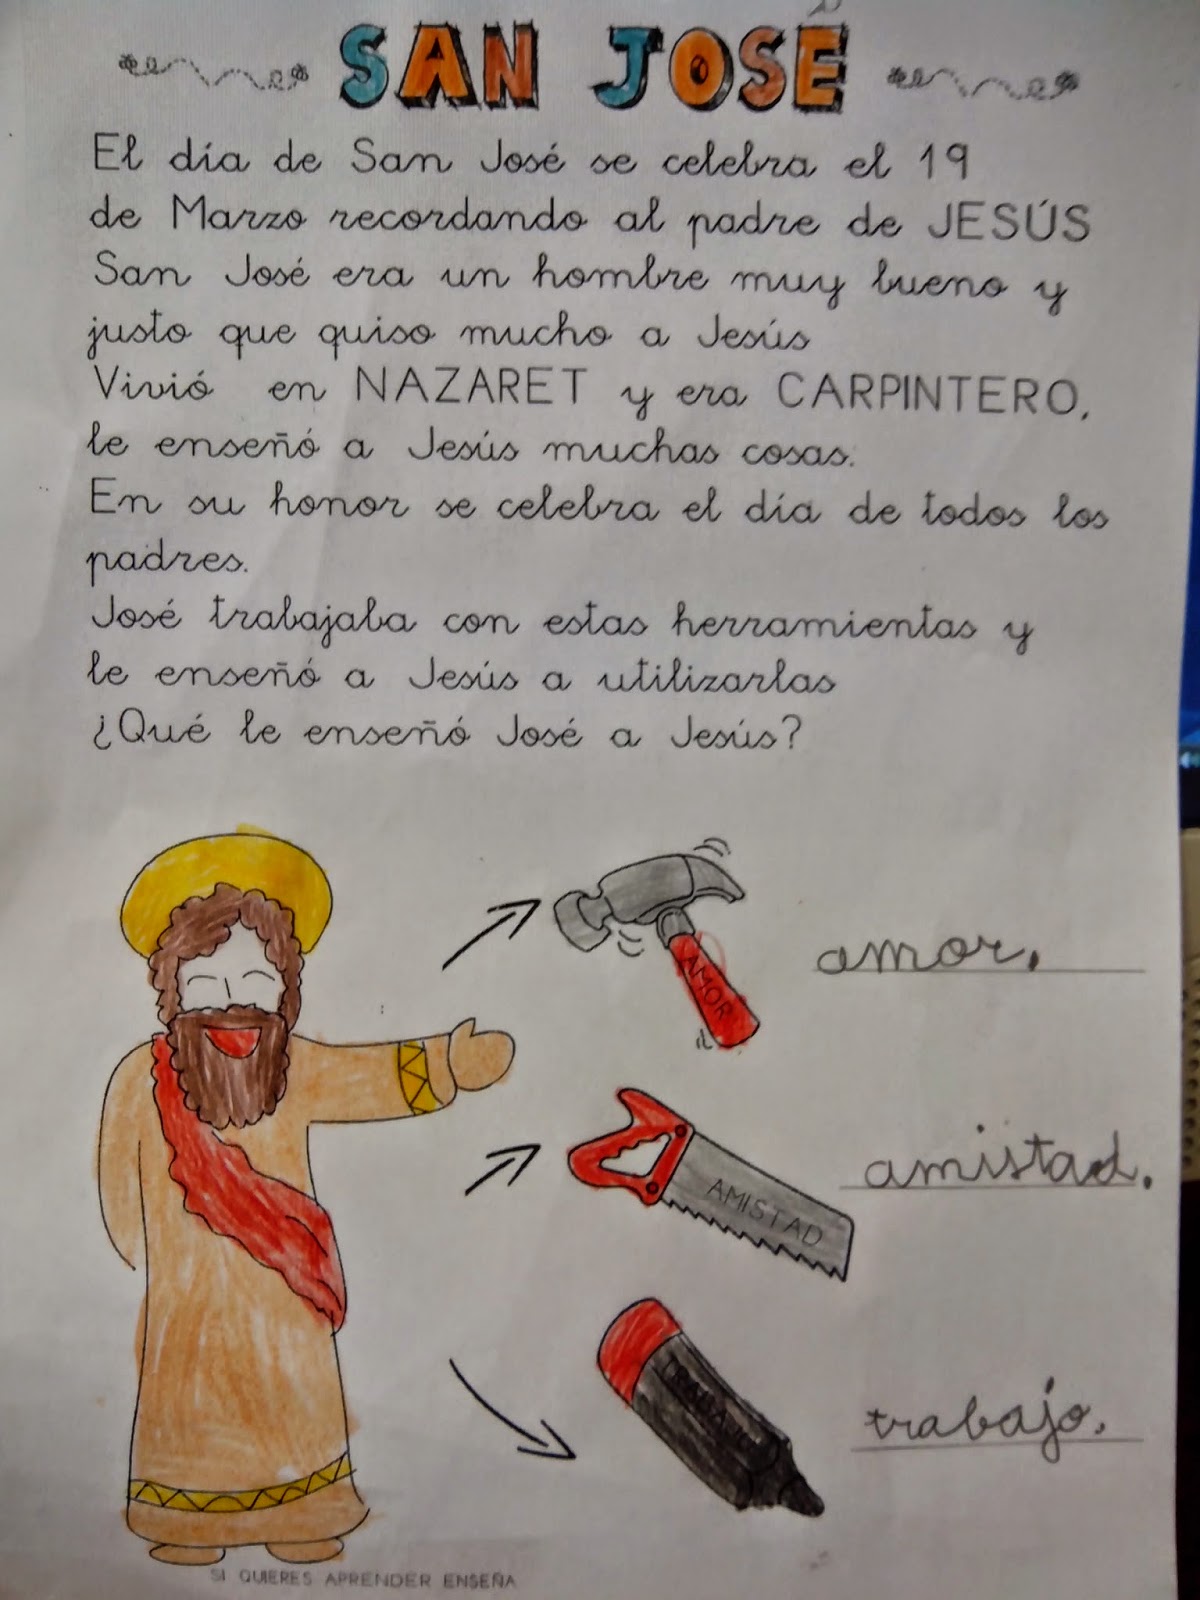 SAN JOSÉ
El día de San José se celebra el 19
de Marzo recordando al padre de JESÚS
San José era un hombre muy bueno y
justo que quiso mucho a Jesús
Vivió en NAZARET y era CARPINTERO,
le enseñó a Jesús muchas cosas.
En su honor se celebra el día de todos los
padres.
José trabajaba con estas herramientas y
le enseñó a Jesús a utilizarlas
¿Qué le enseñó José a Jesús?
AMOR
amor.
AMISTAD
amistad.
TRABAJO
trabajo.
SI QUIERES APRENDER ENSEÑA